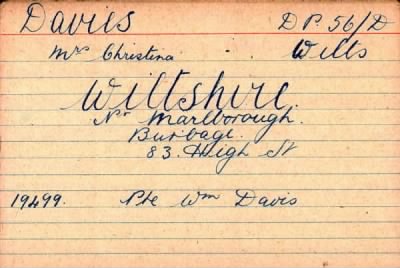 Davies DP. 56/D
Mrs Christina Wilts
Wiltshire.
Nr Marlborough.
Burbage.
83. High St
19499. Pte Wm Davis